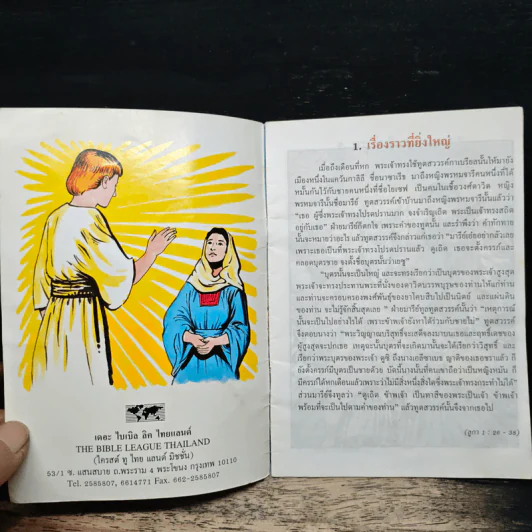 เดอะ ไบเบิล ลีค ไทยแลนด์
THE BIBLE LEAGUE THAILAND
(ไครสต์ ทู ไทย แลนด์ มิชชั่น)
53/1 ซ. แสนสบาย ถ.พระราม 4 พระโขนง กรุงเทพ 10110
Tel. 2585807, 6614771 Fax. 662-2585807
1. เรื่องราวที่ยิ่งใหญ่
เมื่อถึงเดือนที่หก พระเจ้าทรงใช้ทูตสวรรค์กาเบรียลนั้นให้มายัง
เมืองหนึ่งในแคว้นกาลิลี ชื่อนาซาเร็ธ มาถึงหญิงพรหมจารีคนหนึ่งที่ได้
หมั้นกันไว้กับชายคนหนึ่งที่ชื่อโยเซฟ เป็นคนในเชื้อวงศ์ดาวิด หญิง
พรหมจารีนั้นชื่อมารีย์ ทูตสวรรค์เข้าบ้านมาถึงหญิงพรหมจารีนั้นแล้วว่า
"เธอ ผู้ซึ่งพระเจ้าทรงโปรดปรานมาก จงจำเริญเถิด พระเป็นเจ้าทรงสถิต
อยู่กับเธอ" ฝ่ายมารีย์ก็ตกใจ เพราะคำของทูตนั้น และรำพึงว่า คำทักทาย
นั้นจะหมายว่าอะไร แล้วทูตสวรรค์จึงกล่าวแก่เธอว่า "มารีย์เอ๋ยอย่ากลัวเลย
เพราะเธอเป็นที่พระเจ้าทรงโปรดปรานแล้ว ดูเถิด เธอจะตั้งครรภ์และ
คลอดบุตรชาย จงตั้งชื่อบุตรนั้นว่าเยซู"
"บุตรนั้นจะเป็นใหญ่ และจะทรงเรียกว่าเป็นบุตรของพระเจ้าสูงสุด
พระเจ้าจะทรงประทานพระที่นั่งของดาวิดบรรพบุรุษของท่านให้แก่ท่าน
และท่านจะครอบครองพงศ์พันธุ์ของยาโคบสืบไปเป็นนิตย์ และแผ่นดิน
ของท่าน จะไม่รู้จักสิ้นสุดเลย" ฝ่ายมารีย์ทูลทูตสวรรค์นั้นว่า "เหตุการณ์
นั้นจะเป็นไปอย่างไรได้ เพราะข้าพเจ้ายังหาได้ร่วมกับชายไม่" ทูตสวรรค์
จึงตอบนางว่า "พระวิญญาณบริสุทธิ์จะเสด็จลงมาบนเธอและฤทธิ์เดชของ
ผู้สูงสุดจะปกเธอ เหตุฉะนั้นบุตรที่จะเกิดมานั้นจะได้เรียกว่าวิสุทธิ์ และ
เรียกว่าพระบุตรของพระเจ้า ดูซิ ถึงนางเอลีซาเบธ ญาติของเธอชราแล้ว ก็
ยังตั้งครรภ์มีบุตรเป็นชายด้วย บัดนี้นางนั้นที่คนเขาถือว่าเป็นหญิงหมัน ก็
มีครรภ์ได้หกเดือนแล้วเพราะว่าไม่มีสิ่งหนึ่งสิ่งใดซึ่งพระเจ้าทรงกระทำไม่ได้"
ส่วนมารีย์จึงทูลว่า "ดูเถิด ข้าพเจ้า เป็นทาสีของพระเป็นเจ้า ข้าพเจ้า
พร้อมที่จะเป็นไปตามคำของท่าน" แล้วทูตสวรรค์นั้นจึงจากเธอไป
(ลูกา 1 : 26 - 38)